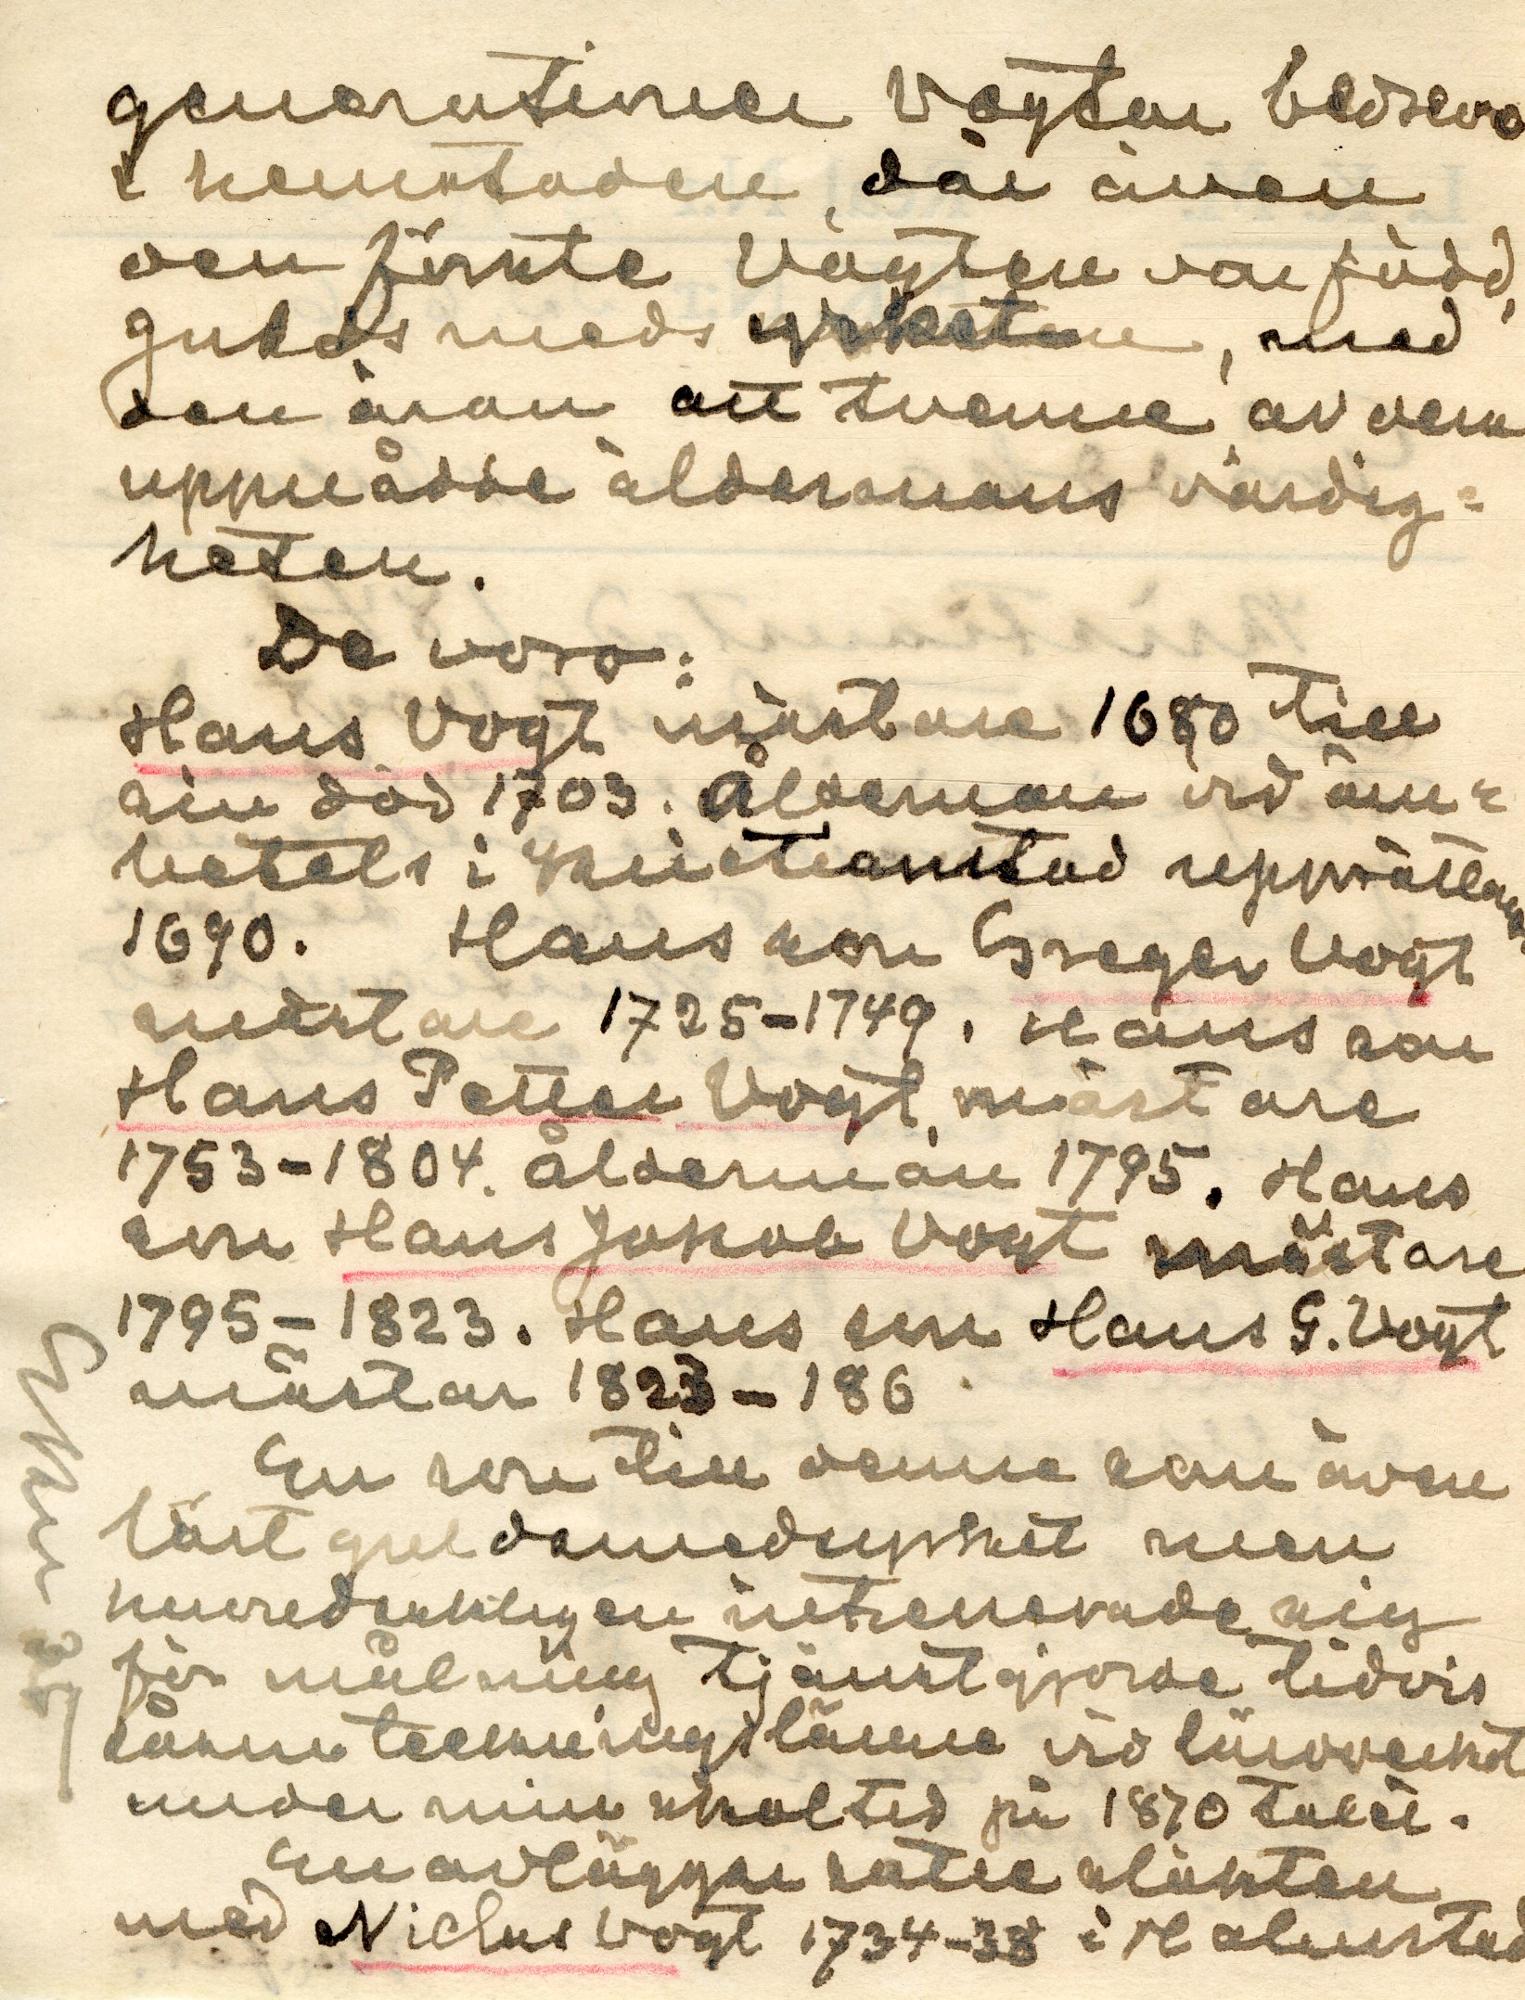 generationer Vogtar bedrevo
i hemstaden, där även
den förste Vogten var född,
guldsmedsyrket, med
den äran att tvenne av dem
uppnådde åldermans värdig=
heten.
De voro:
Hans Vogt mästare 1680 till
sin död 1703. Ålderman vid äm=
betets i Kristianstad upprättande
1690. Hans son Greger Vogt
mästare 1725-1749. Hans son
Hans Petter Vogt, mästare
1753-1804. Ålderman 1795. Hans
son Hans Jakob Vogt mästare
1795-1823. Hans son Hans G. Vogt
mästar 1823-186
En son till denne som även
lärt guldsmedsyrket men
huvudsakligen intresserade sig
för målning tjänstgjorde tidvis
såsom teckningslärare vid läroverket
under min skoltid på 1870 talet.
En avläggare satte släkten
med Niclas Vogt 1734-38 i Halmstad